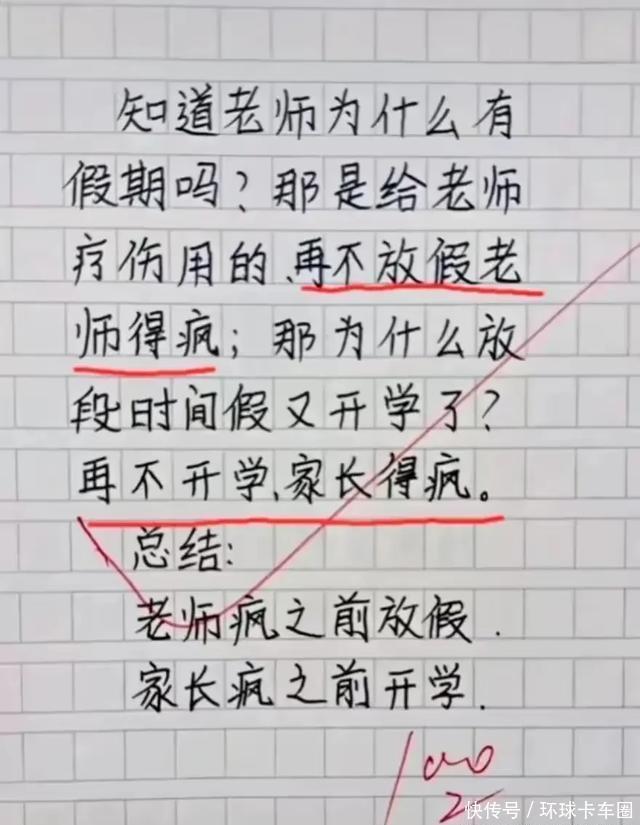 知道老师为什么有
假期吗？那是给老师
疗伤用的、再不放假老
师得疯；那为什么放
段时间假又开学了？
再不开学、家长得疯。
总结：
老师疯之前放假．
家长疯之前开学．
100
快传号／环球卡车圈